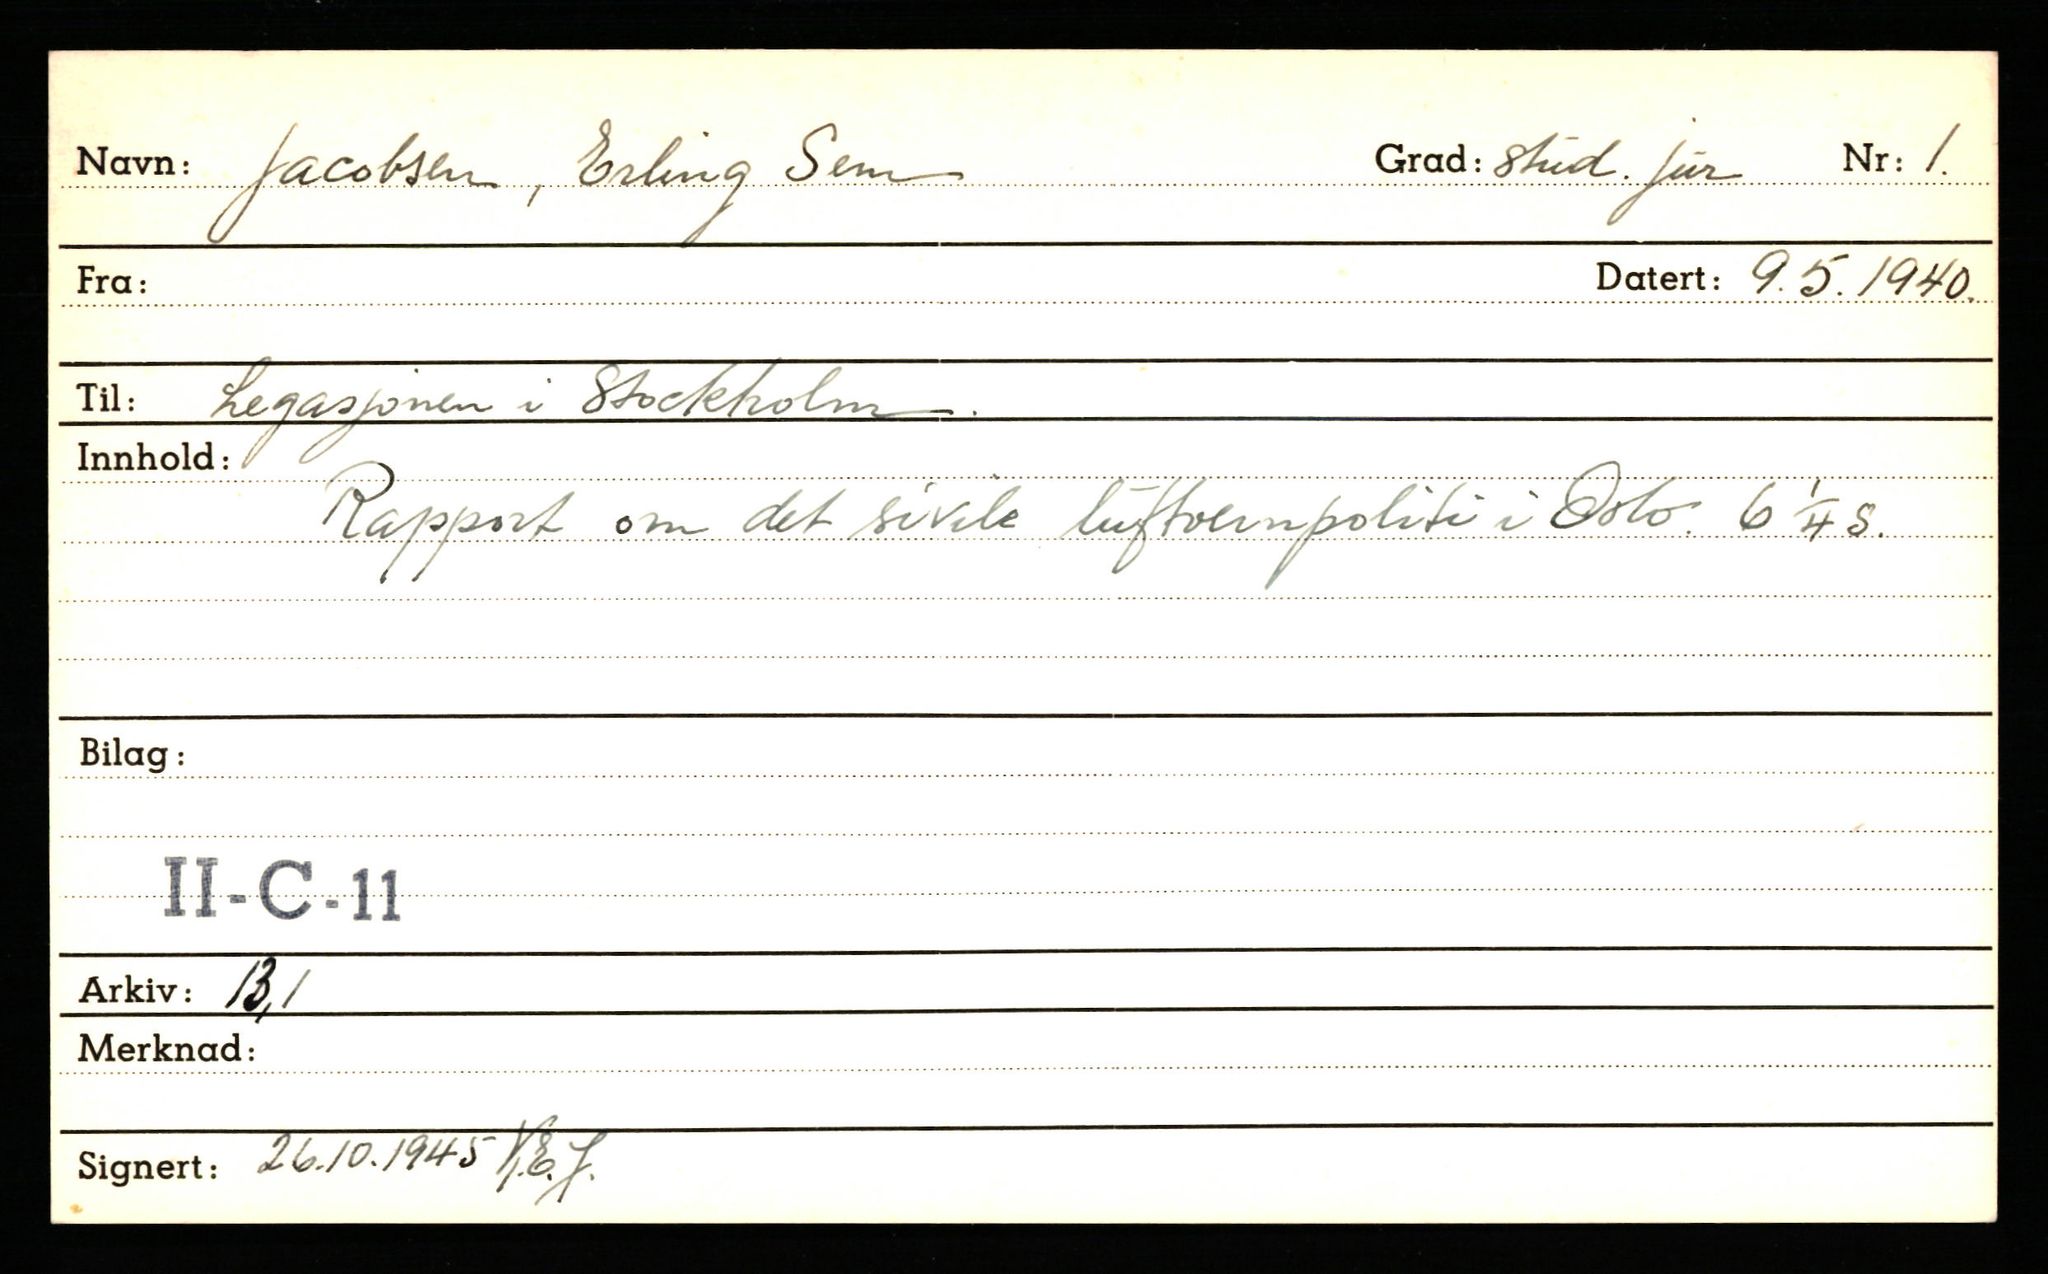 Navn: Jacobsen, Erling Sem Grad: stud. jur Nr: 1.
Fra: Datert: 9.5.1940.
Til: Legasjonen i Stockholm.
Innhold:
Rapport om det sivile luftvernpoliti i Oslo. 6 1/4 s.
Bilag:
II-C-11
Arkiv: B, 1
Merknad:
Signert: 26.10.1945